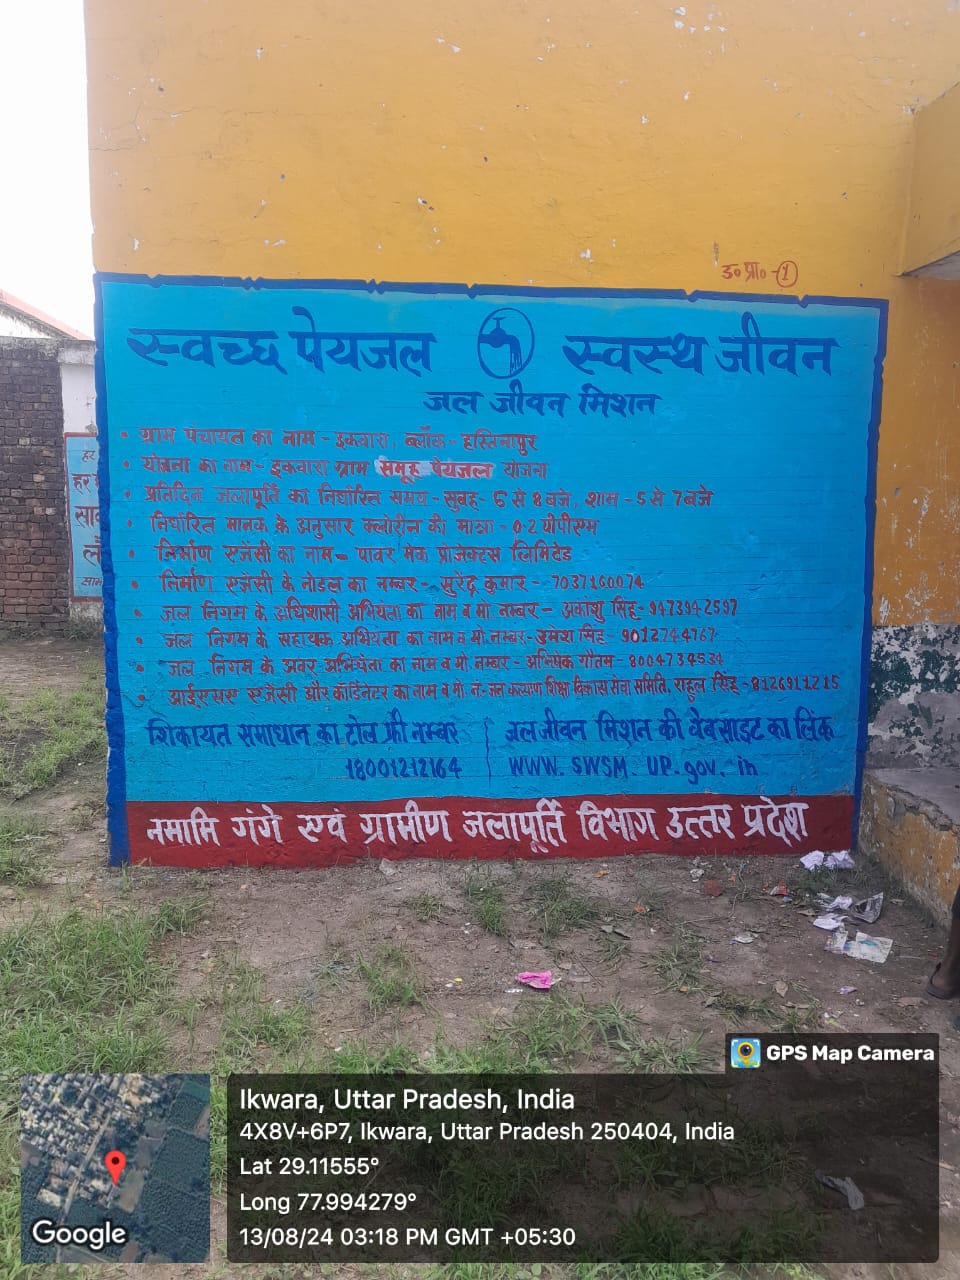 उ० प्रा० -1
स्वच्छ पेयजल स्वस्थ जीवन
जल जीवन मिशन
• ग्राम पंचायत का नाम - इकवारा, ब्लॉक - हस्तिनापुर
• योजना का नाम - इकवारा ग्राम समूह पेयजल योजना
• प्रतिदिन जलापूर्ति का निर्धारित समय - सुबह - 6 से 8 बजे, शाम - 5 से 7 बजे
• निर्धारित मानक के अनुसार क्लोरीन की मात्रा - 0.2 पीपीएम
• निर्माण एजेंसी का नाम - पावर मेक प्रोजेक्ट्स लिमिटेड
• निर्माण एजेंसी के नोडल का नम्बर - सुरेंद्र कुमार - 7037160074
• जल निगम के अधिशासी अभियंता का नाम व मो. नम्बर - अकांशु सिंह - 9473942597
• जल निगम के सहायक अभियंता का नाम व मो. नम्बर - उमेश सिंह - 9012744767
• जल निगम के अवर अभियंता का नाम व मो. नम्बर - अभिषेक गौतम - 8004734534
• आईएसए एजेंसी और कॉर्डिनेटर का नाम व मो. नं. - जन कल्याण शिक्षा विकास सेवा समिति, राहुल सिंह - 8126911215
शिकायत समाधान का टोल फ्री नम्बर
18001212164
जल जीवन मिशन की वेबसाइट का लिंक
WWW. SWSM. UP. gov. in
नमामि गंगे एवं ग्रामीण जलापूर्ति विभाग उत्तर प्रदेश
GPS Map Camera
Ikwara, Uttar Pradesh, India
4X8V+6P7, Ikwara, Uttar Pradesh 250404, India
Lat 29.11555°
Long 77.994279°
13/08/24 03:18 PM GMT +05:30
Google